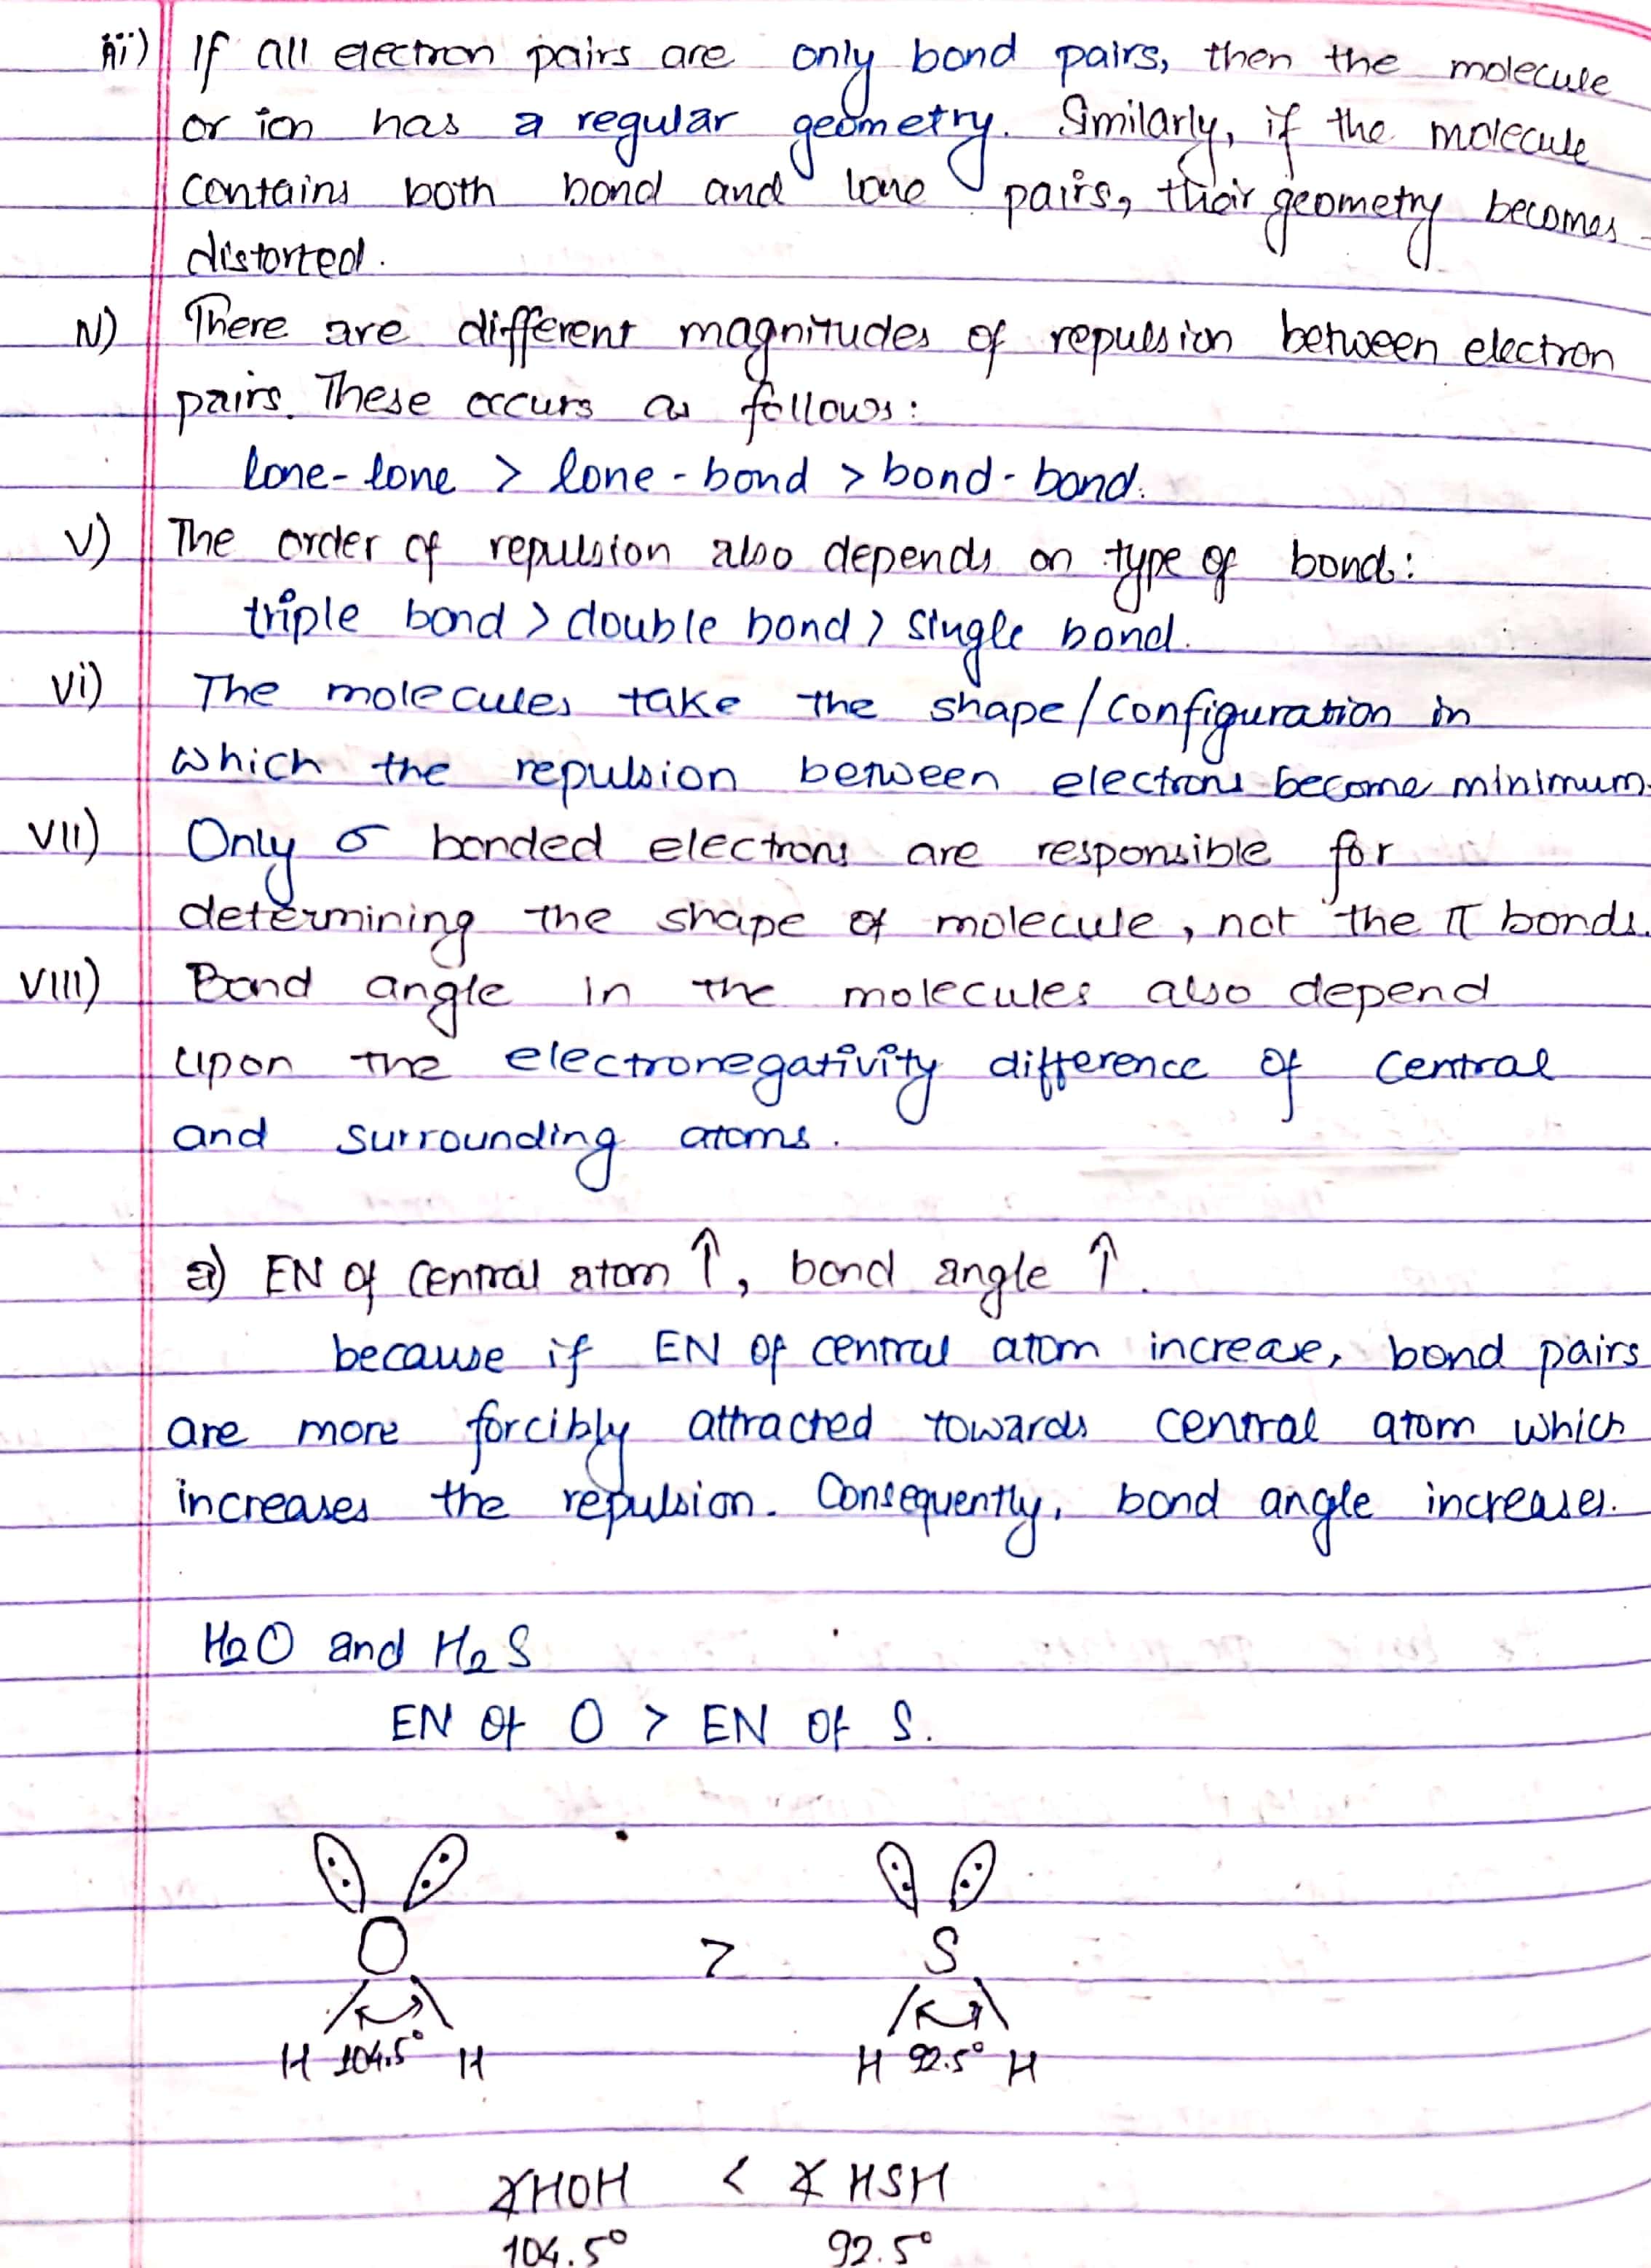 iii) If all electron pairs are only bond pairs, then the molecule
or ion has a regular geometry. Similarly, if the molecule
contains both bond and lone pairs, their geometry becomes
distorted.
iv) There are different magnitudes of repulsion between electron
pairs. These occurs as follows:
lone-lone > lone-bond > bond-bond.
v) The order of repulsion also depends on type of bond:
triple bond > double bond > single bond.
vi) The molecules take the shape/configuration in
which the repulsion between electrons become minimum.
vii) Only σ bonded electrons are responsible for
determining the shape of molecule, not the π bonds.
viii) Bond angle in the molecules also depend
upon the electronegativity difference of central
and surrounding atoms.
a) EN of central atom ↑, bond angle ↑.
because if EN of central atom increase, bond pairs
are more forcibly attracted towards central atom which
increases the repulsion. Consequently, bond angle increases.
H2O and H2S
EN of O > EN of S.
O > S
H 104.5° H H 92.5° H
∡HOH < ∡HSH
104.5° 92.5°